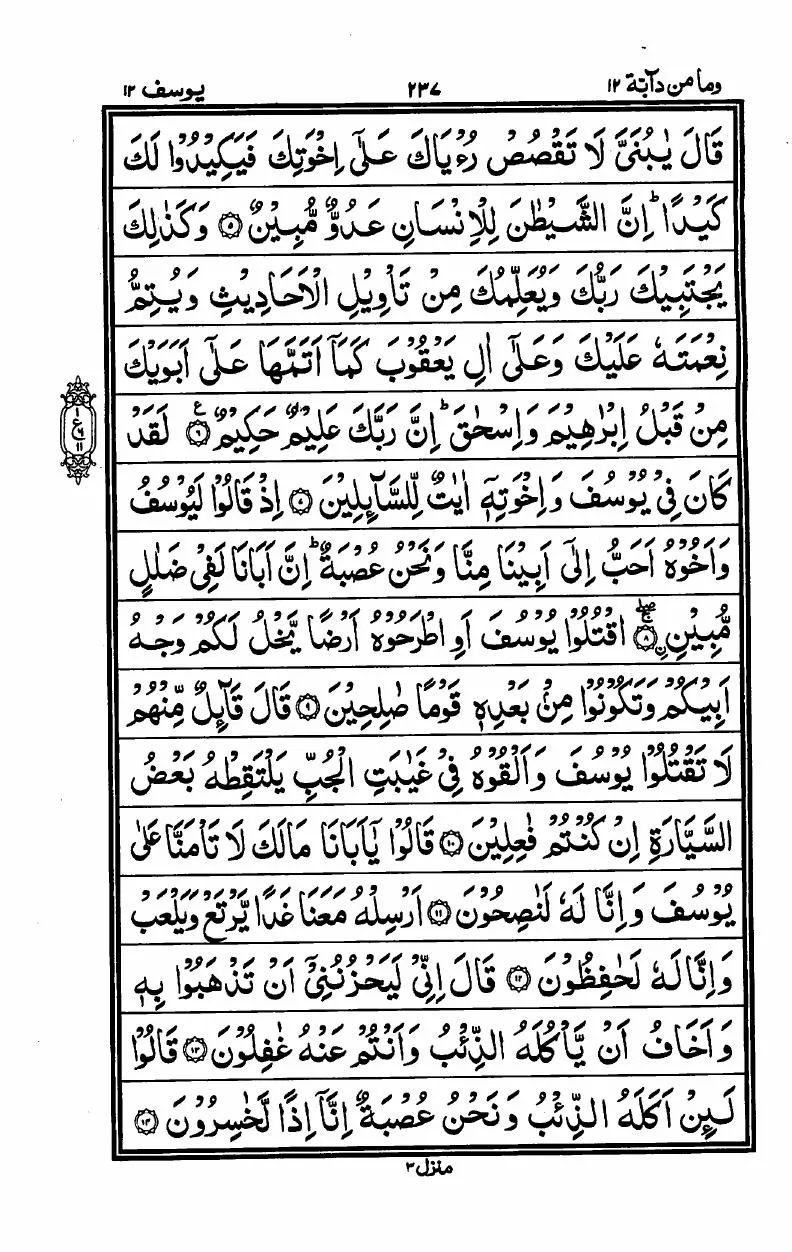 وما من دآبة ١٢ ٢٣٧ يوسف ١٢
قَالَ يٰبُنَيَّ لَا تَقْصُصْ رُءْيَاكَ عَلٰۤى اِخْوَتِكَ فَيَكِيْدُوْا لَكَ
كَيْدًا ؕ اِنَّ الشَّيْطٰنَ لِلْاِنْسَانِ عَدُوٌّ مُّبِيْنٌ ۝۵ وَكَذٰلِكَ
يَجْتَبِيْكَ رَبُّكَ وَيُعَلِّمُكَ مِنْ تَاْوِيْلِ الْاَحَادِيْثِ وَيُتِمُّ
نِعْمَتَهٗ عَلَيْكَ وَعَلٰۤى اٰلِ يَعْقُوْبَ كَمَاۤ اَتَمَّهَا عَلٰۤى اَبَوَيْكَ
مِنْ قَبْلُ اِبْرٰهِيْمَ وَاِسْحٰقَ ؕ اِنَّ رَبَّكَ عَلِيْمٌ حَكِيْمٌ ۝۶ ع لَقَدْ
ع ١ ٦ ١١
كَانَ فِيْ يُوْسُفَ وَاِخْوَتِهٖۤ اٰيٰتٌ لِّلسَّآئِلِيْنَ ۝۷ اِذْ قَالُوْا لَيُوْسُفُ
وَاَخُوْهُ اَحَبُّ اِلٰۤى اَبِيْنَا مِنَّا وَنَحْنُ عُصْبَةٌ ؕ اِنَّ اَبَانَا لَفِيْ ضَلٰلٍ
مُّبِيْنِ ۝۸ اقْتُلُوْا يُوْسُفَ اَوِ اطْرَحُوْهُ اَرْضًا يَّخْلُ لَكُمْ وَجْهُ
اَبِيْكُمْ وَتَكُوْنُوْا مِنْۢ بَعْدِهٖ قَوْمًا صٰلِحِيْنَ ۝۹ قَالَ قَآئِلٌ مِّنْهُمْ
لَا تَقْتُلُوْا يُوْسُفَ وَاَلْقُوْهُ فِيْ غَيٰبَتِ الْجُبِّ يَلْتَقِطْهُ بَعْضُ
السَّيَّارَةِ اِنْ كُنْتُمْ فٰعِلِيْنَ ۝۱۰ قَالُوْا يٰۤاَبَانَا مَالَكَ لَا تَاْمَنَّا عَلٰى
يُوْسُفَ وَاِنَّا لَهٗ لَنٰصِحُوْنَ ۝۱۱ اَرْسِلْهُ مَعَنَا غَدًا يَّرْتَعْ وَيَلْعَبْ
وَاِنَّا لَهٗ لَحٰفِظُوْنَ ۝۱۲ قَالَ اِنِّيْ لَيَحْزُنُنِيْۤ اَنْ تَذْهَبُوْا بِهٖ
وَاَخَافُ اَنْ يَّاْكُلَهُ الذِّئْبُ وَاَنْتُمْ عَنْهُ غٰفِلُوْنَ ۝۱۳ قَالُوْا
لَئِنْ اَكَلَهُ الذِّئْبُ وَنَحْنُ عُصْبَةٌ اِنَّاۤ اِذًا لَّخٰسِرُوْنَ ۝۱۴
منزل ٣